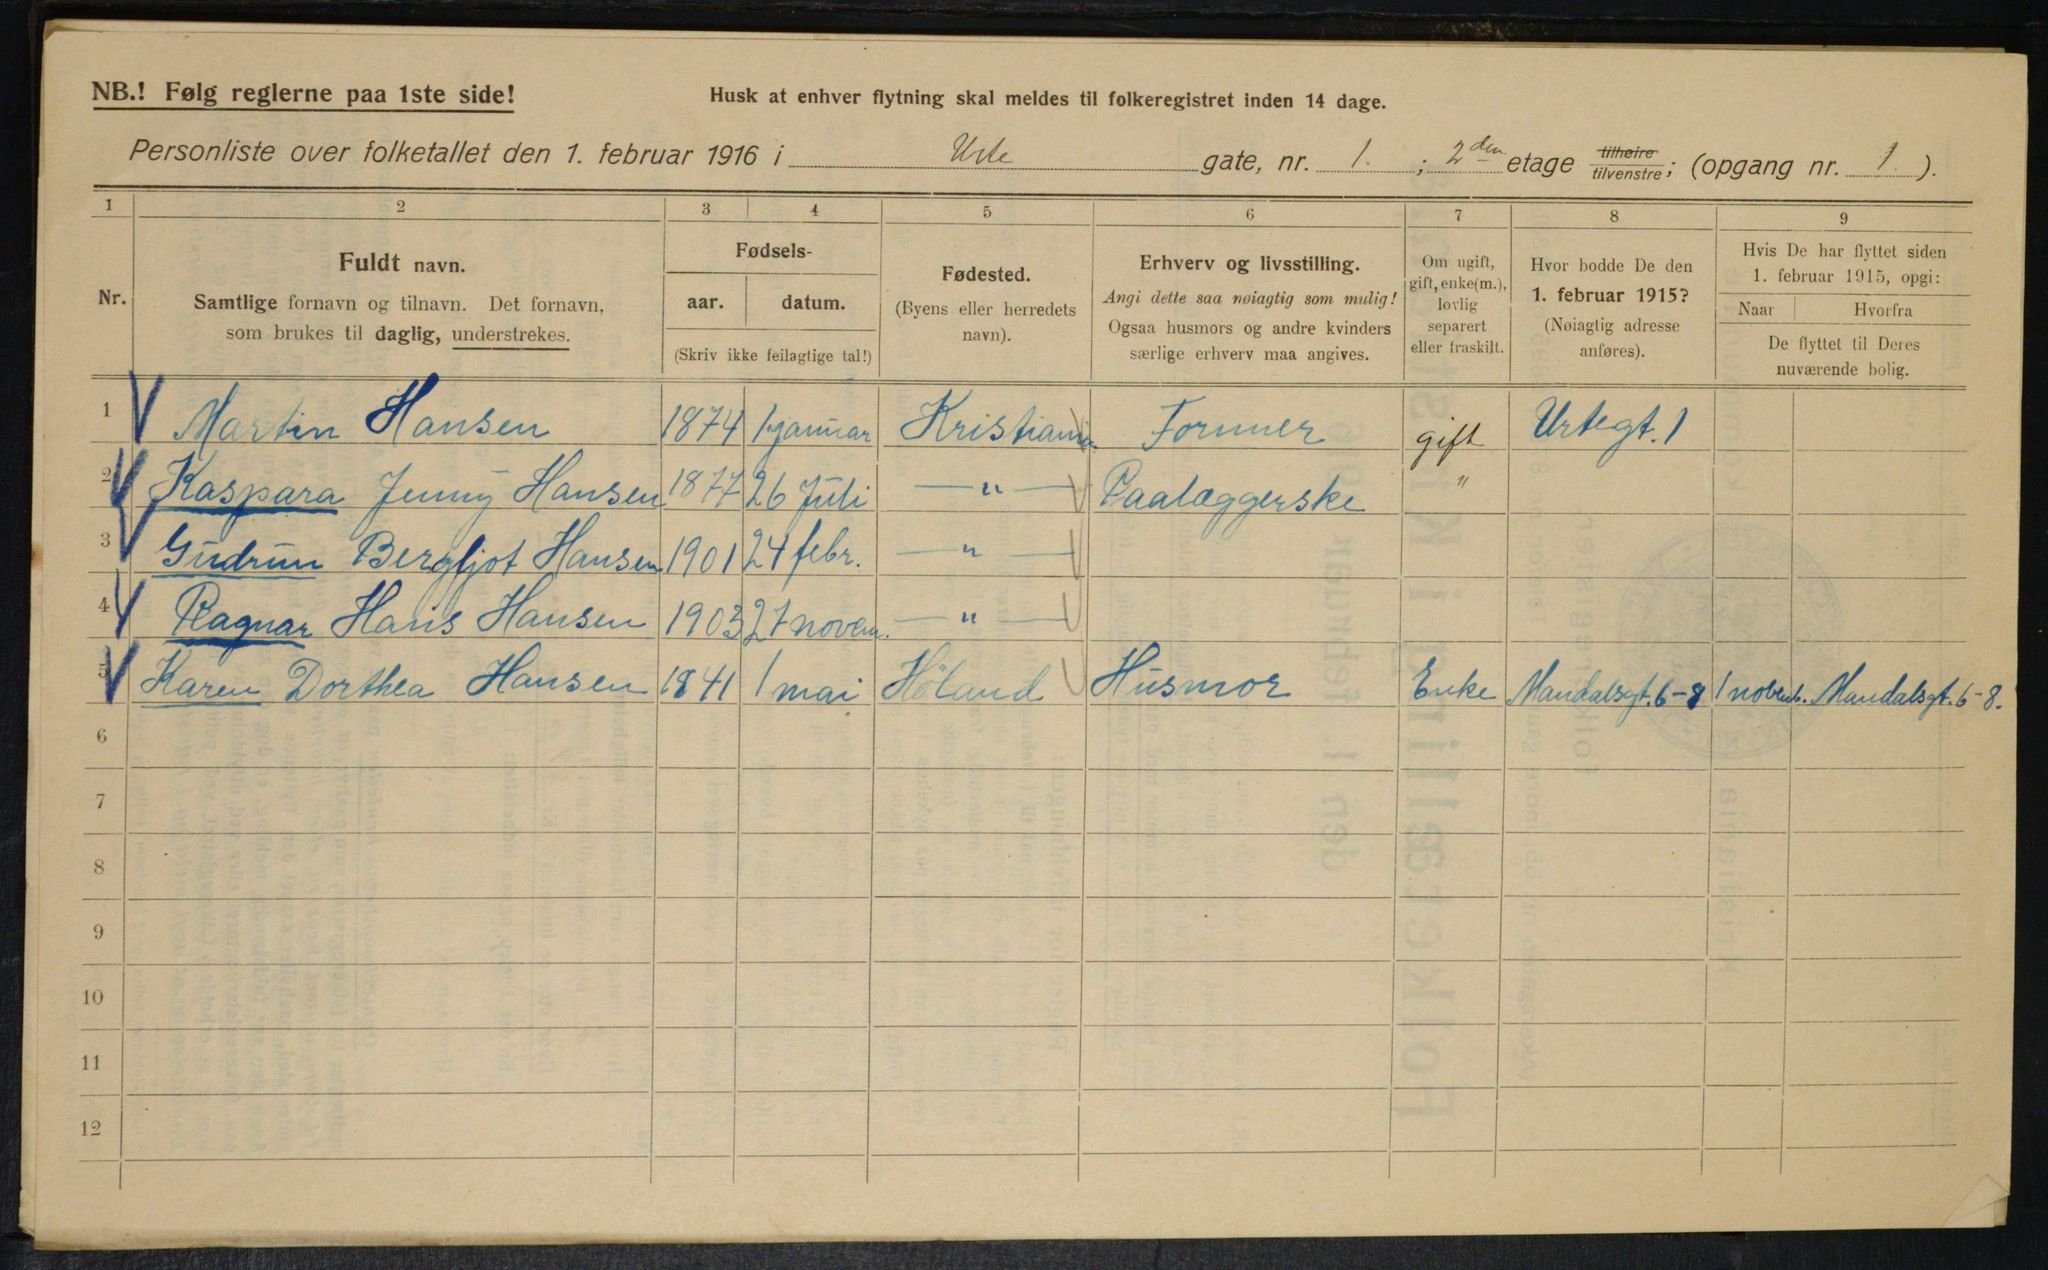 NB.! Følg reglerne paa 1ste side!
Husk at enhver flytning skal meldes til folkeregistret inden 14 dage.
Personliste over folketallet den 1. februar 1916 i Urte gate, nr. 1. ; 2den etage tilhøire / tilvenstre ; (opgang nr. 1. ).
1 2 3 4 5 6 7 8 9
Nr.
Fuldt navn.
Samtlige fornavn og tilnavn. Det fornavn,
som brukes til daglig, understrekes.
Fødsels-
aar. datum.
(Skriv ikke feilagtige tal!)
Fødested.
(Byens eller herredets
navn).
Erhverv og livsstilling.
Angi dette saa nøiagtig som mulig!
Ogsaa husmors og andre kvinders
særlige erhverv maa angives.
Om ugift,
gift, enke(m.),
lovlig
separert
eller fraskilt.
Hvor bodde De den
1. februar 1915?
(Nøiagtig adresse
anføres).
Hvis De har flyttet siden
1. februar 1915, opgi:
Naar Hvorfra
De flyttet til Deres
nuværende bolig.
1 Martin Hansen 1874 1 januar Kristiania Formner gift Urtegt. 1
2 Kaspara Jenny Hansen 1877 26 Juli — " — Paalæggerske "
3 Gudrun Bergljot Hansen 1901 24 febr. — " —
4 Ragnar Hans Hansen 1903 27 novem. — " —
5 Karen Dorthea Hansen 1841 1 mai Høland Husmor Enke Mandalsgt. 6-8 1 novemb. Mandalsgt. 6-8.
6
7
8
9
10
11
12